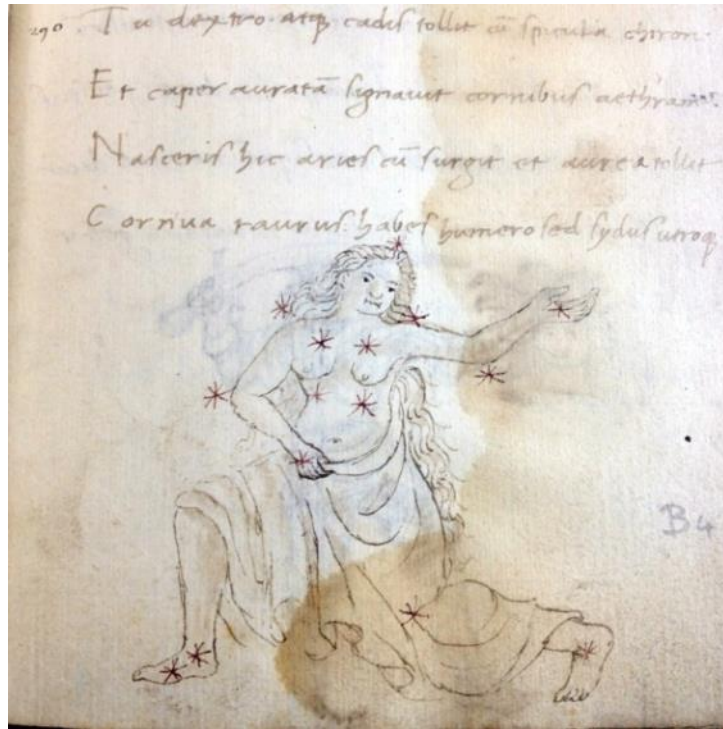 290. Tu dextro atq cadis tollit cū spicula chiron.
Et caper auratā signavit cornibus aethram
Nasceris hic aries cū surgit et aurea tollit
Cornua taurus. habes humero sed sydus utroq
B4